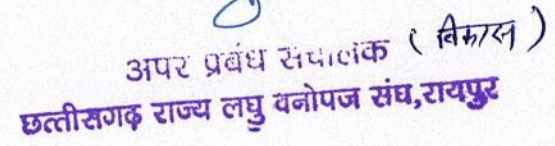 अपर प्रबंध संचालक ( विकास )
छत्तीसगढ़ राज्य लघु वनोपज संघ,रायपुर